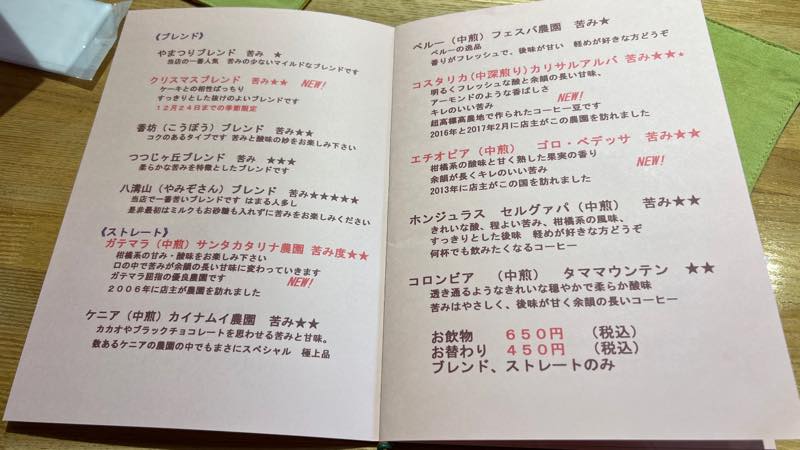 《ブレンド》
やまつりブレンド 苦み ★
当店の一番人気 苦みの少ないマイルドなブレンドです
クリスマスブレンド 苦み★★ NEW!
ケーキとの相性ばっちり
すっきりとした抜けのよいブレンドです
12月24日までの季節限定
香坊（こうぼう）ブレンド 苦み★★
コクのあるタイプです 苦みと酸味の妙をお楽しみ下さい
つつじヶ丘ブレンド 苦み ★★★
柔らかな苦みを特徴としたブレンドです
八溝山（やみぞさん）ブレンド 苦み★★★★★
当店で一番苦いブレンドです はまる人多し
是非最初はミルクもお砂糖も入れずに苦みをお楽しみください
《ストレート》
ガテマラ（中煎）サンタカタリナ農園 苦み度★★
柑橘系の甘み・酸味をお楽しみ下さい
口の中で苦みが余韻の長い甘味に変わっていきます
ガテマラ屈指の優良農園です NEW!
2006年に店主が農園を訪れました
ケニア（中煎）カイナムイ農園 苦み★★
カカオやブラックチョコレートを思わせる苦みと甘味。
数あるケニアの農園の中でもまさにスペシャル 極上品
ペルー（中煎）フェスパ農園 苦み★
ペルーの逸品
香りがフレッシュで、後味が甘い 軽めが好きな方どうぞ
コスタリカ（中深煎り）カリサルアルバ 苦み★★★
明るくフレッシュな酸と余韻の長い甘味、
アーモンドのような香ばしさ
キレのいい苦み NEW!
超高標高農地で作られたコーヒー豆です
2016年と2017年2月に店主がこの農園を訪れました
エチオピア（中煎） ゴロ・ベデッサ 苦み★★
柑橘系の酸味と甘く熟した果実の香り
余韻が長くキレのいい苦み NEW!
2013年に店主がこの国を訪れました
ホンジュラス セルグァパ（中煎） 苦み★★
きれいな酸、程よい苦み、柑橘系の風味、
すっきりとした後味 軽めが好きな方どうぞ
何杯でも飲みたくなるコーヒー
コロンビア （中煎） タママウンテン ★★
透き通るようなきれいな穏やかで柔らか酸味
苦みはやさしく、後味が甘く余韻の長いコーヒー
お飲物 650円 （税込）
お替わり 450円 （税込）
ブレンド、ストレートのみ